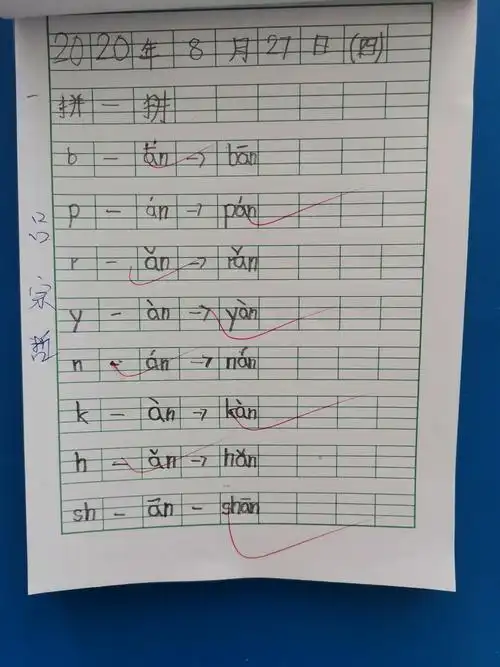 2020年8月27日(四)
拼一拼
b - án → bān
p - án → pán
r - ǎn → rǎn
y - àn → yàn
n - án → nán
k - àn → kàn
h - ǎn → hǎn
sh - ān - shān